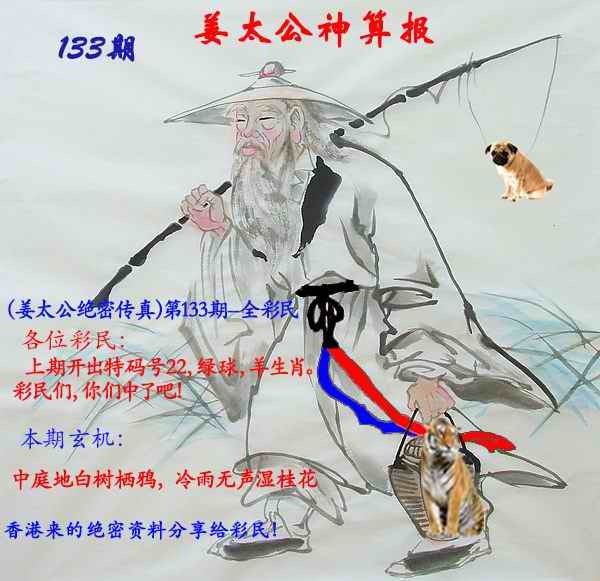 姜太公神算报
133期
(姜太公绝密传真)第133期--全彩民
各位彩民:
上期开出特码号22,绿球,羊生肖。
彩民们,你们中了吧!
本期玄机:
中庭地白树栖鸦, 冷雨无声湿桂花
香港来的绝密资料分享给彩民!